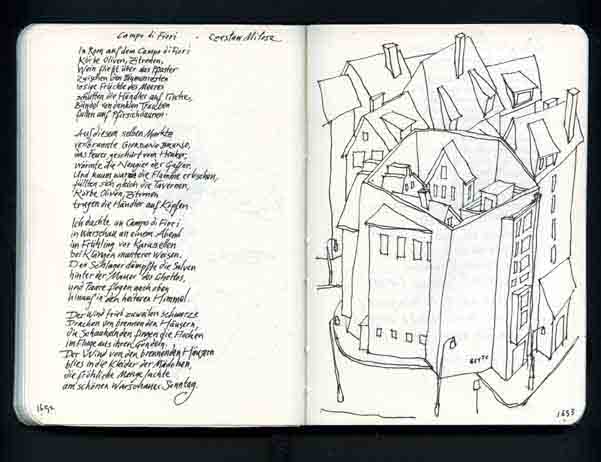 Campo di Fiori - Czesław Miłosz
In Rom auf dem Campo di Fiori
Körbe Oliven, Zitronen,
Wein fließt über das Pflaster
zwischen den Blumenresten
rosige Früchte des Meeres
schütten die Händler auf Tische,
Bündel von dunklen Trauben
fallen auf Pfirsichdaunen.
Auf diesem selben Markte
verbrannte Giordano Bruno,
das Feuer geschürt vom Henker,
wärmte die Neugier der Gaffer.
Und kaum war die Flamme erloschen,
füllten sich gleich die Tavernen,
Körbe Oliven, Zitronen
tragen die Händler auf Köpfen.
Ich dachte an Campo di Fiori
in Warschau an einem Abend
im Frühling vor Karussellen
bei Klängen munterer Weisen.
Der Schlager dämpfte die Salven
hinter der Mauer des Ghettos,
und Paare flogen nach oben
hinauf in den heiteren Himmel.
Der Wind trieb zuweilen schwarze
Drachen von brennenden Häusern,
die Schaukelnden fingen die Flocken
im Fluge aus ihren Gondeln.
Der Wind von den brennenden Häusern
blies in die Kleider der Mädchen,
die fröhliche Menge lachte
am schönen Warschauer Sonntag.
1652
1653